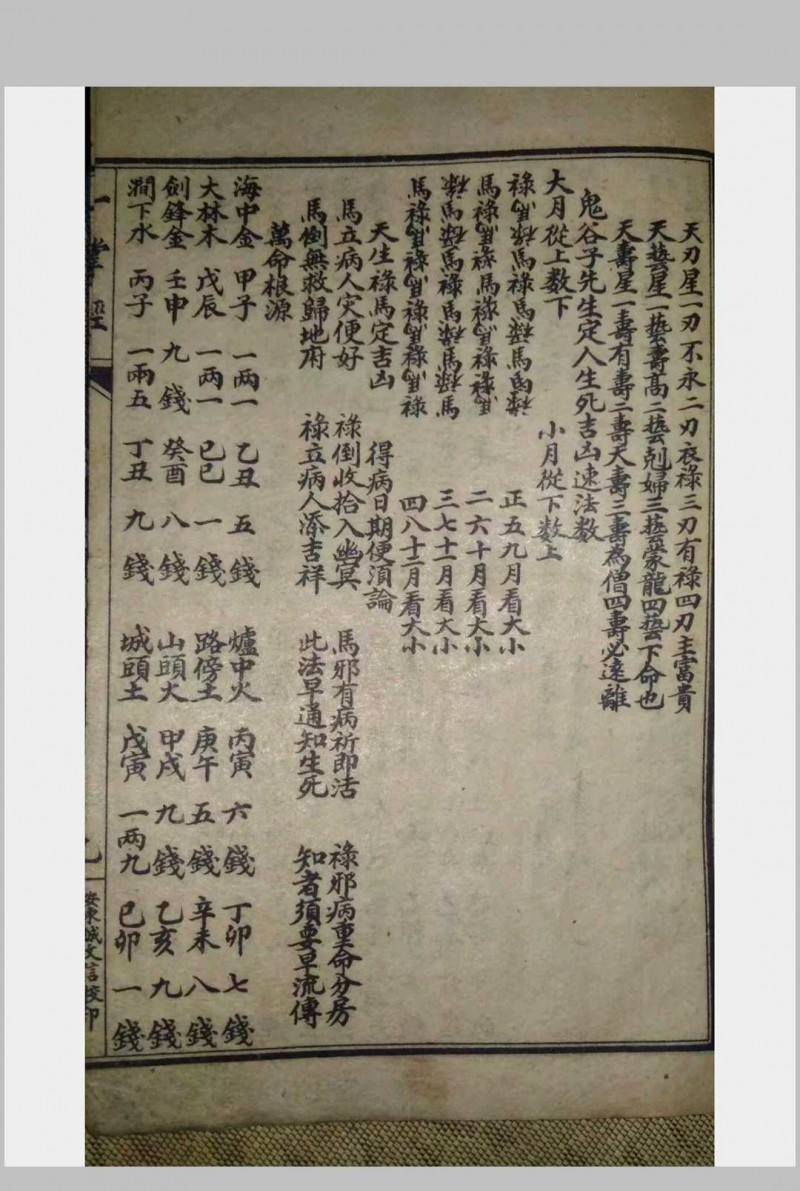 天刃星一刃不永二刃衣祿三刃有祿四刃主富貴
天藝星一藝壽高二藝剋婦三藝蒙龍四藝下命也
天壽星一壽有壽二壽天壽三壽為僧四壽必遠離
鬼谷子先生定入生死吉凶速法数
大月從上数下 小月從下数上
祿馬祿馬祿馬祿 正五九月看大小
馬祿馬祿馬祿馬 二六十月看大小
祿馬祿馬祿馬 三七十一月看大小
馬祿馬祿馬祿馬祿 四八十二月看大小
天生祿馬定吉凶 得病日期便須論
馬立病人灾便好 祿倒收拾入幽冥 馬邪有病祈即活 祿邪病重命分房
馬倒無救歸地府 祿立病人添吉祥 此法早通知生死 知者須要早流傳
萬命根源
海中金 甲子 一兩一 乙丑 五錢 爐中火 丙寅 六錢 丁卯 七錢
大林木 戊辰 一兩一 己巳 一錢 路傍土 庚午 五錢 辛未 八錢
劍鋒金 壬申 九錢 癸酉 八錢 山頭火 甲戌 九錢 乙亥 九錢
澗下水 丙子 一兩五 丁丑 九錢 城頭土 戊寅 一兩九 己卯 一錢
一掌經 九
安東誠文信校印